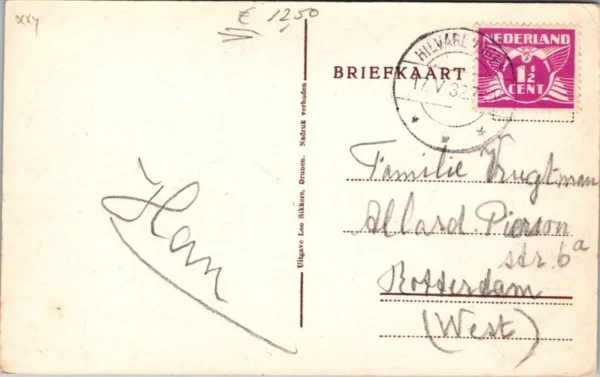 xxy
£ 12,50
BRIEFKAART
NEDERLAND
1½
CENT
HILVARENBEEK
17.V 32
Uitgave Leo Sikkers, Drunen. Nadruk verboden
Familie Vrugtman
Allard Pierson
str. 6a
Rotterdam
(West)
Han